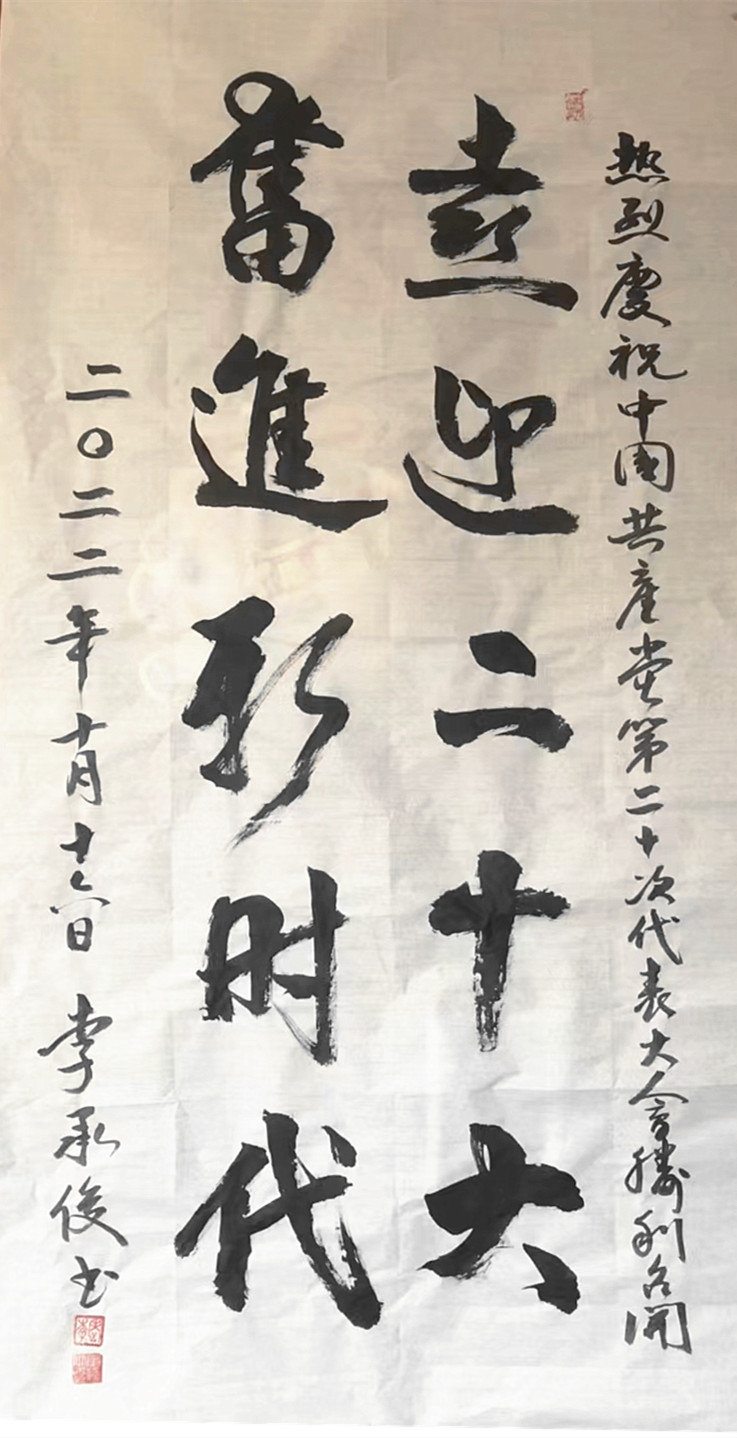 热烈慶祝中国共產党第二十次代表大會勝利召開
喜迎二十大
奮進新时代
二〇二二年十月十六日 李承俊书